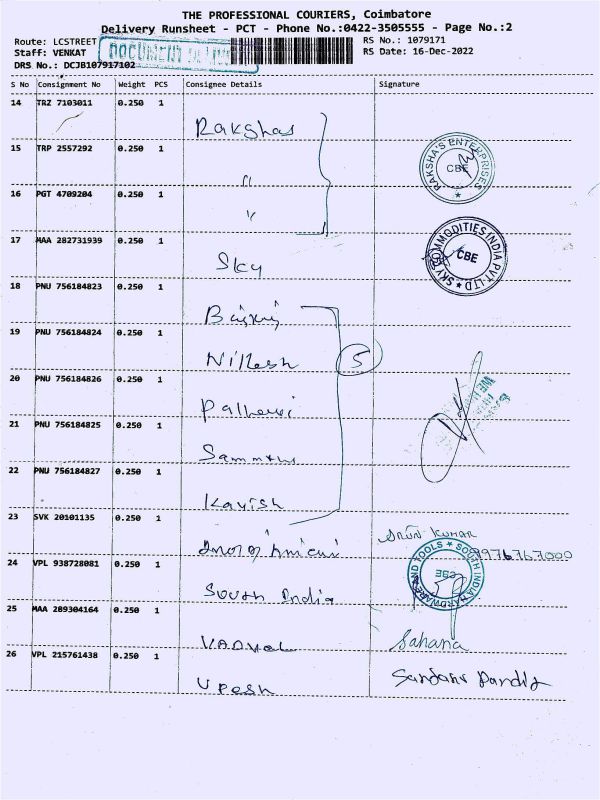 THE PROFESSIONAL COURIERS, Coimbatore
Delivery Runsheet - PCT - Phone No.:0422-3505555 - Page No.:2
Route: LCSTREET RS No.: 1079171
Staff: VENKAT RS Date: 16-Dec-2022
DRS No.: DCJB107917102
DOCUMENT
S No Consignment No Weight PCS Consignee Details Signature
14 TRZ 7103011 0.250 1
Rakshas
15 TRP 2557292 0.250 1
"
RAKSHA'S ENTERPRISES CBE
16 PGT 4709204 0.250 1
"
17 MAA 282731939 0.250 1
Sky
SKY COMMODITIES INDIA PVT LTD CBE
18 PNU 756184823 0.250 1
19 PNU 756184824 0.250 1
Nillesh 5
20 PNU 756184826 0.250 1
21 PNU 756184825 0.250 1
22 PNU 756184827 0.250 1
Kavish
23 SVK 20101135 0.250 1
Arun Kumar
9976767000
24 VPL 938728081 0.250 1
South India
SOUTH INDIA HARDWARE AND TOOLS
25 MAA 289304164 0.250 1
Sahana
26 VPL 215761438 0.250 1
Upesh